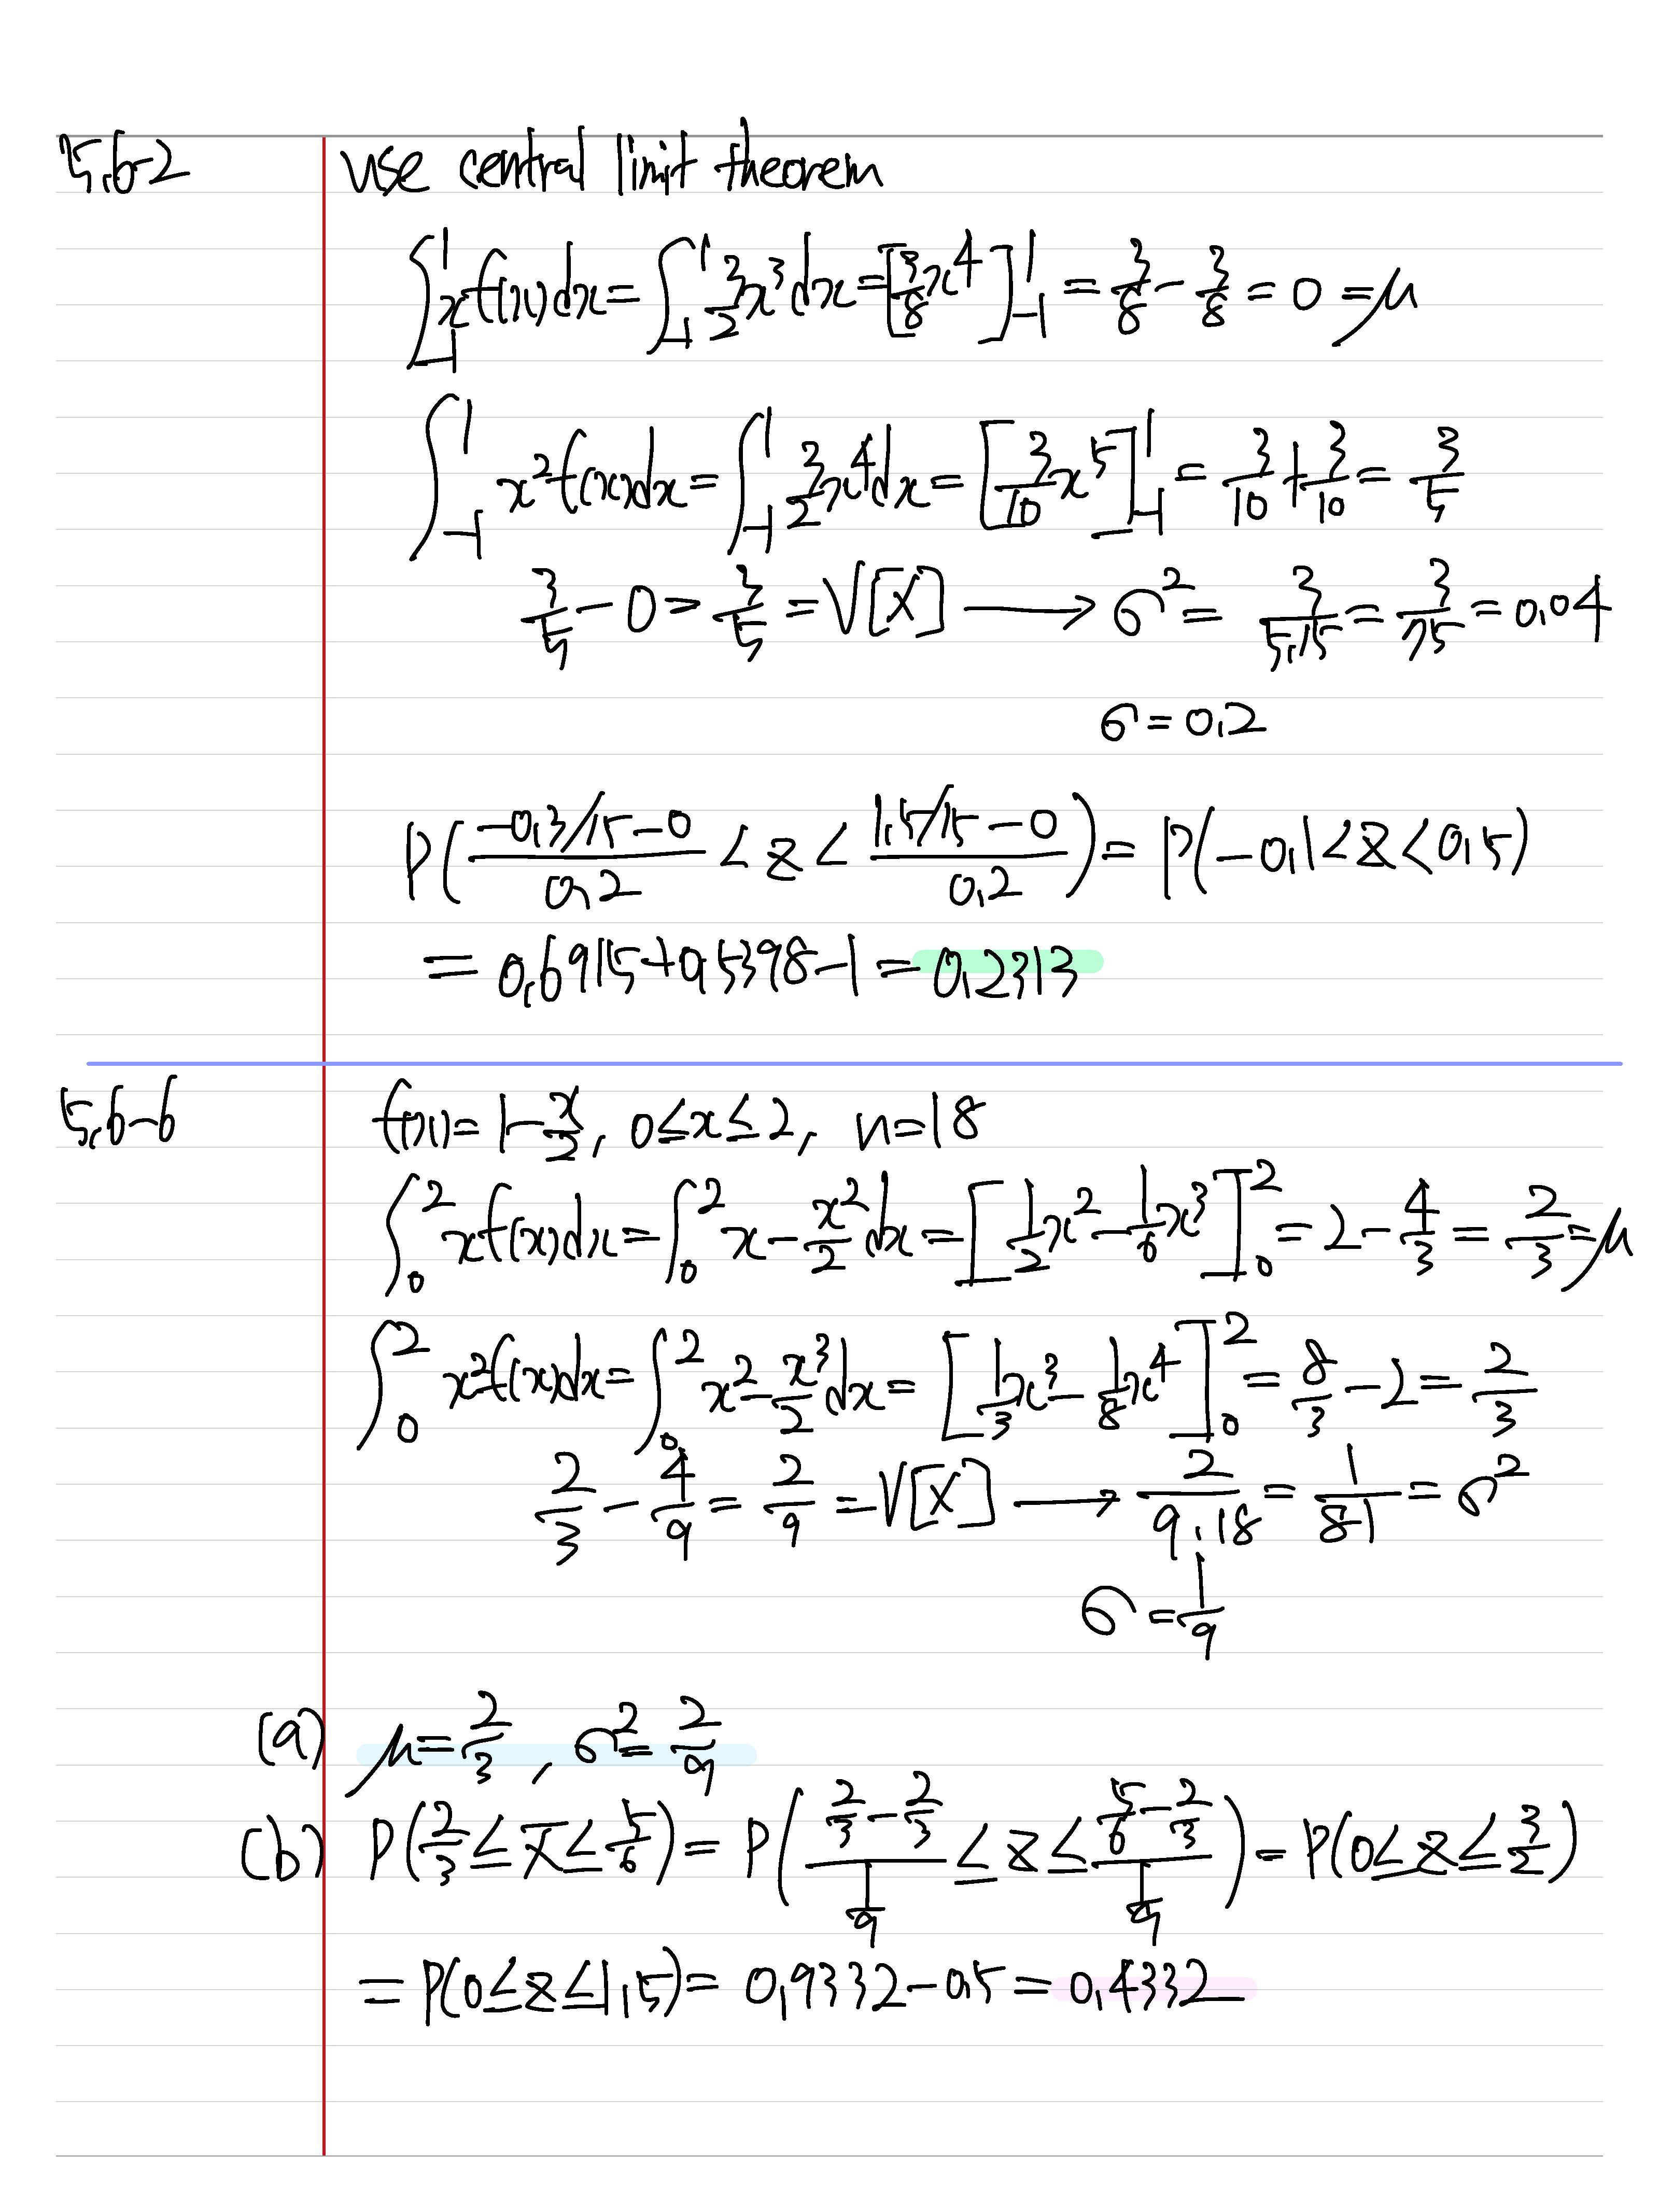 5.6-2 use central limit theorem
∫_{-1}^{1} x f(x) dx = ∫_{-1}^{1} 3/2 x^3 dx = [3/8 x^4]_{-1}^{1} = 3/8 - 3/8 = 0 = μ
∫_{-1}^{1} x^2 f(x) dx = ∫_{-1}^{1} 3/2 x^4 dx = [3/10 x^5]_{-1}^{1} = 3/10 + 3/10 = 3/5
3/5 - 0 = 3/5 = V[X] → σ^2 = 3/(5·15) = 3/75 = 0.04
σ = 0.2
P((-0.3/15 - 0)/0.2 < z < (1.5/15 - 0)/0.2) = P(-0.1 < z < 0.5)
= 0.6915 + 0.5398 - 1 = 0.2313
5.6-6 f(x) = 1 - x/2, 0 ≤ x ≤ 2, n = 18
∫_0^2 x f(x) dx = ∫_0^2 x - x^2/2 dx = [1/2 x^2 - 1/6 x^3]_0^2 = 2 - 4/3 = 2/3 = μ
∫_0^2 x^2 f(x) dx = ∫_0^2 x^2 - x^3/2 dx = [1/3 x^3 - 1/8 x^4]_0^2 = 8/3 - 2 = 2/3
2/3 - 4/9 = 2/9 = V[X] → 2/(9·18) = 1/81 = σ^2
σ = 1/9
(a) μ = 2/3, σ^2 = 2/9
(b) P(2/3 ≤ x̄ ≤ 5/6) = P((2/3 - 2/3)/(1/9) ≤ z ≤ (5/6 - 2/3)/(1/9)) = P(0 ≤ z ≤ 3/2)
= P(0 ≤ z ≤ 1.5) = 0.9332 - 0.5 = 0.4332